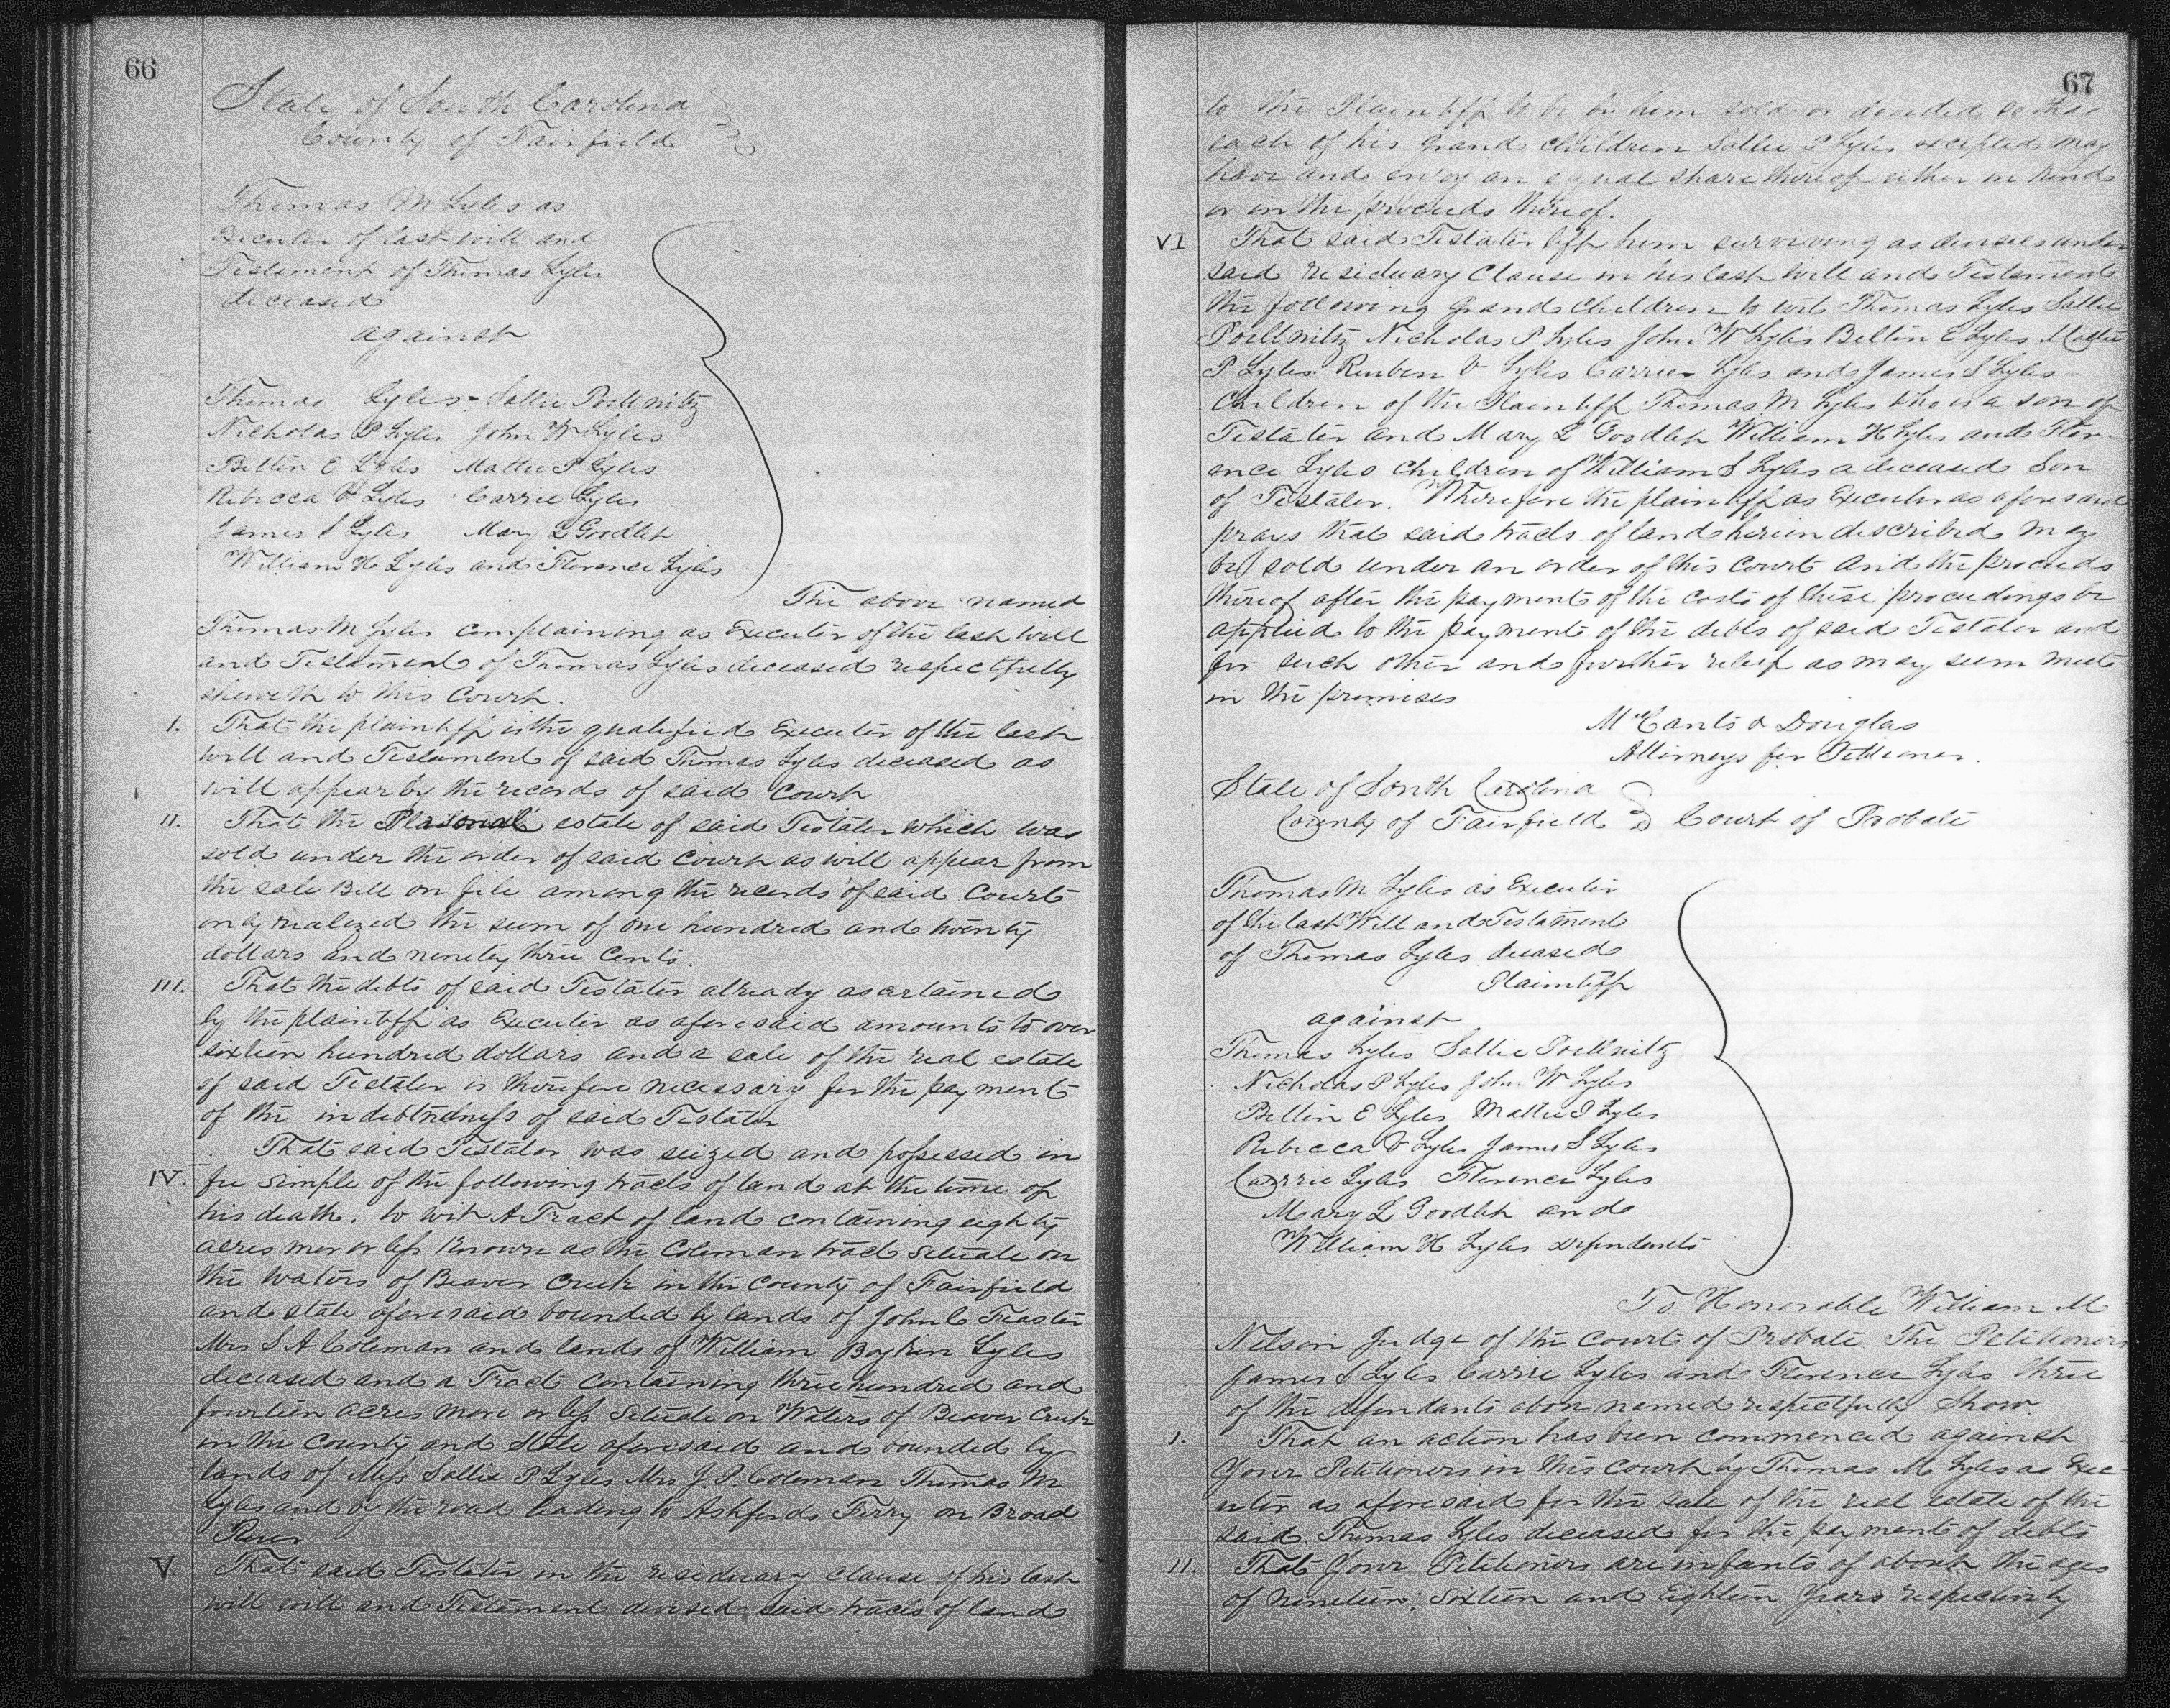 66
State of South Carolina
County of Fairfield
Thomas M Lyles as
Executor of last will and
Testament of Thomas Lyles
deceased
against
Thomas Lyles - Sallie Poellnitz
Nicholas P Lyles John W Lyles
Beltin E Lyles Mattie P Lyles
Rebecca V Lyles Carrie Lyles
James S Lyles Mary L Goodlett
William H Lyles and Florence Lyles
The above named
Thomas M Lyles complaining as Executor of the last will
and Testament of Thomas Lyles deceased respectfully
sheweth to this Court.
I. That the plaintiff is the qualified Executor of the last
will and Testament of said Thomas Lyles deceased as
will appear by the records of said Court
II. That the Personal estate of said Testator which was
sold under the order of said Court as will appear from
the sale Bill on file among the records of said Court
only realized the sum of one hundred and twenty
dollars and ninety three Cents.
III. That the debts of said Testator already ascertained
by the plaintiff as Executor as aforesaid amounts to over
sixteen hundred dollars and a sale of the real estate
of said Testator is therefore necessary for the payment
of the indebtedness of said Testator
That said Testator was seized and possessed in
IV. fee simple of the following tracts of land at the time of
his death. to wit A Tract of land containing eighty
acres more or less known as the Coleman tract situate on
the waters of Beaver Creek in the County of Fairfield
and state aforesaid bounded by lands of John C Feaster
Mrs S A Coleman and lands of William Boykin Lyles
deceased and a Tract containing three hundred and
fourteen acres more or less situate on Waters of Beaver Creek
in the County and State aforesaid and bounded by
lands of Miss Sallie P Lyles Mrs J. P. Coleman Thomas M
Lyles and by the road leading to Ashfords Ferry on Broad
River
V. That said Testator in the residuary clause of his last
will will and Testament devised said tracts of land
67
to the Plaintiff to be by him sold or divided so that
each of his Grand children Sallie P Lyles excepted may
have and enjoy an equal share thereof either in kind
or in the proceeds thereof.
VI That said Testator left him surviving as devisees under
said residuary Clause in his last will and Testament
the following Grand Children to wit Thomas Lyles Sallie
Poellnitz Nicholas P Lyles John W Lyles Beltin E Lyles Mattie
P Lyles Reuben V Lyles Carrie Lyles and James S Lyles
Children of the Plaintiff Thomas M Lyles who is a son of
Testator and Mary L Goodlett William H Lyles and Flor-
ence Lyles children of William S Lyles a deceased Son
of Testator. Wherefore the plaintiff as Executor as aforesaid
prays that said tracts of land herein described may
be sold under an order of this Court and the proceeds
thereof after the payment of the costs of these proceedings be
applied to the payment of the debts of said Testator and
for such other and further relief as may seem meet
in the premises
McCants & Douglas
Attorneys for Petitioner.
State of South Carolina
County of Fairfield Court of Probate
Thomas M Lyles as Executor
of the last Will and Testament
of Thomas Lyles deceased
Plaintiff
against
Thomas Lyles Sallie Poellnitz
Nicholas P Lyles John W Lyles
Beltin E Lyles Mattie P Lyles
Rebecca V Lyles James S Lyles
Carrie Lyles Florence Lyles
Mary L Goodlett and
William H Lyles Defendants
To Honorable William M
Nelson Judge of the Court of Probate The Petitioners
James S Lyles Carrie Lyles and Florence Lyles three
of the defendants above named respectfully Show.
I. That an action has been commenced against
Your Petitioners in this Court by Thomas M Lyles as Exec-
utor as aforesaid for the sale of the real estate of the
said Thomas Lyles deceased for the payment of debts
II. That Your Petitioners are infants of about the ages
of nineteen, Sixteen and Eighteen Years respectively